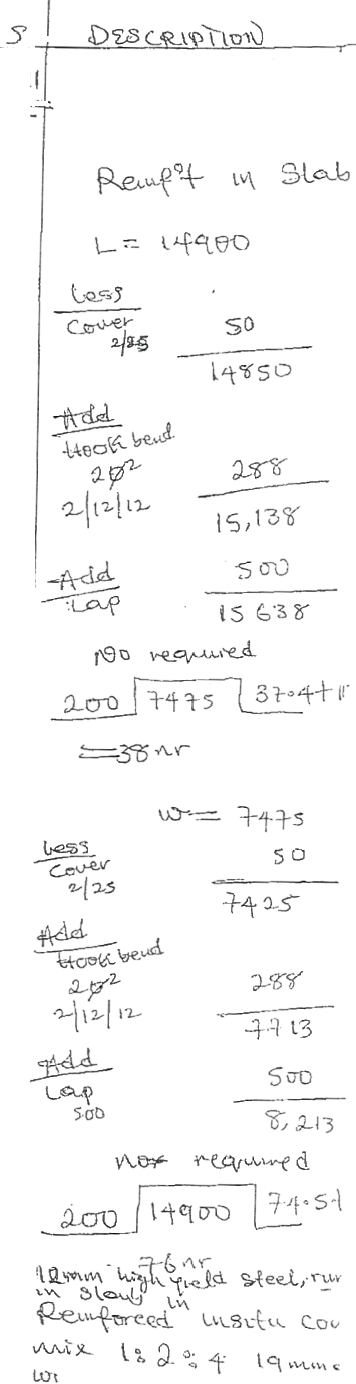 S DESCRIPTION
1
Reinf't in Slab
L = 14900
Less
Cover 50
2/25
14850
Add
Hook bend
2ø2 288
2/12/12
15,138
Add 500
Lap
15638
No required
200 7475 37.4+1
=38nr
w = 7475
Less
Cover 50
2/25
7425
Add
Hook bend
2ø2 288
2/12/12
7713
Add
Lap 500
500
8,213
nos required
200 14900 74.5+
76nr
12mm high yield steel,
in slab in
Reinforced insitu
mix 1:2:4 19mm